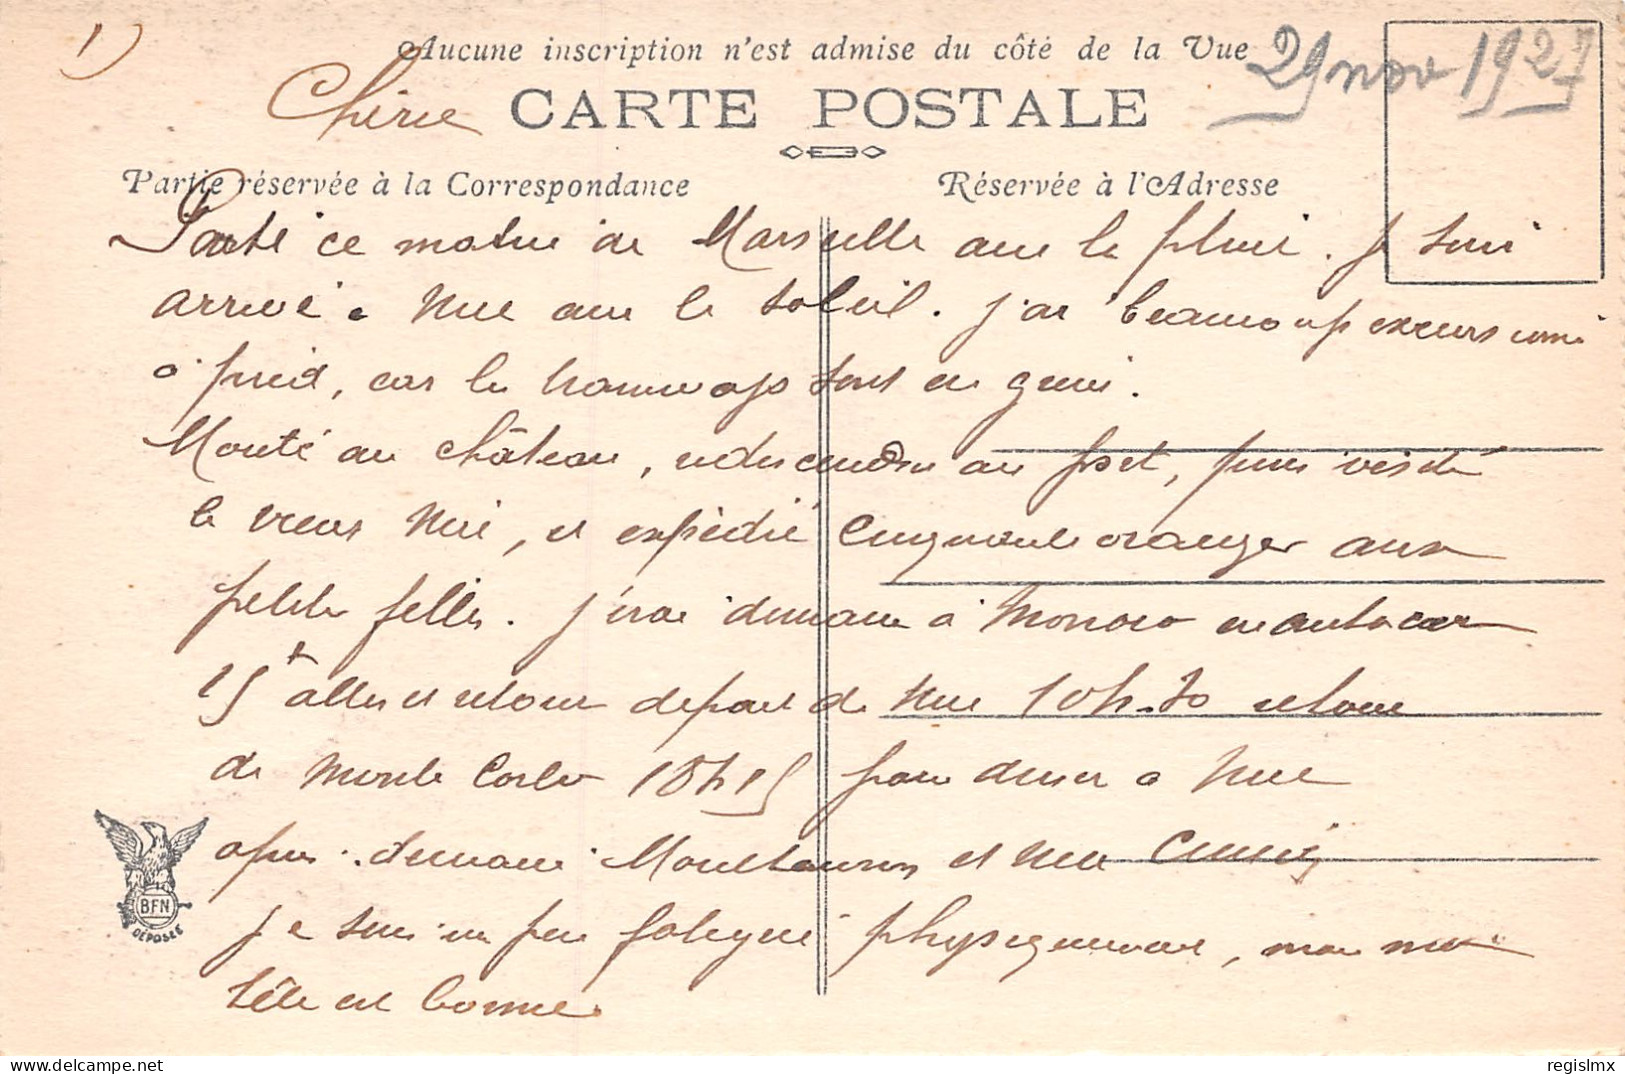 1)
Aucune inscription n'est admise du côté de la Vue
29 nov 1927
Chérie
CARTE POSTALE
Partie réservée à la Correspondance
Réservée à l'Adresse
Parti ce matin de Marseille avec la pluie. Je suis
arrivé à Nice avec le soleil. J'ai beaucoup excursionné
à pied, car les tramways sont en grève.
Monté au château, redescendu au port, puis visité
le vieux Nice, et expédié cinquante oranges aux
petites filles. J'irai demain à Monaco en autocar
15f aller et retour départ de Nice 10h.30 retour
de Monte Carlo 18h15 pour diner à Nice
après-demain et
Je suis un peu fatigué physiquement, mais ma
tête est bonne.
BFN
DÉPOSÉE
regislmx